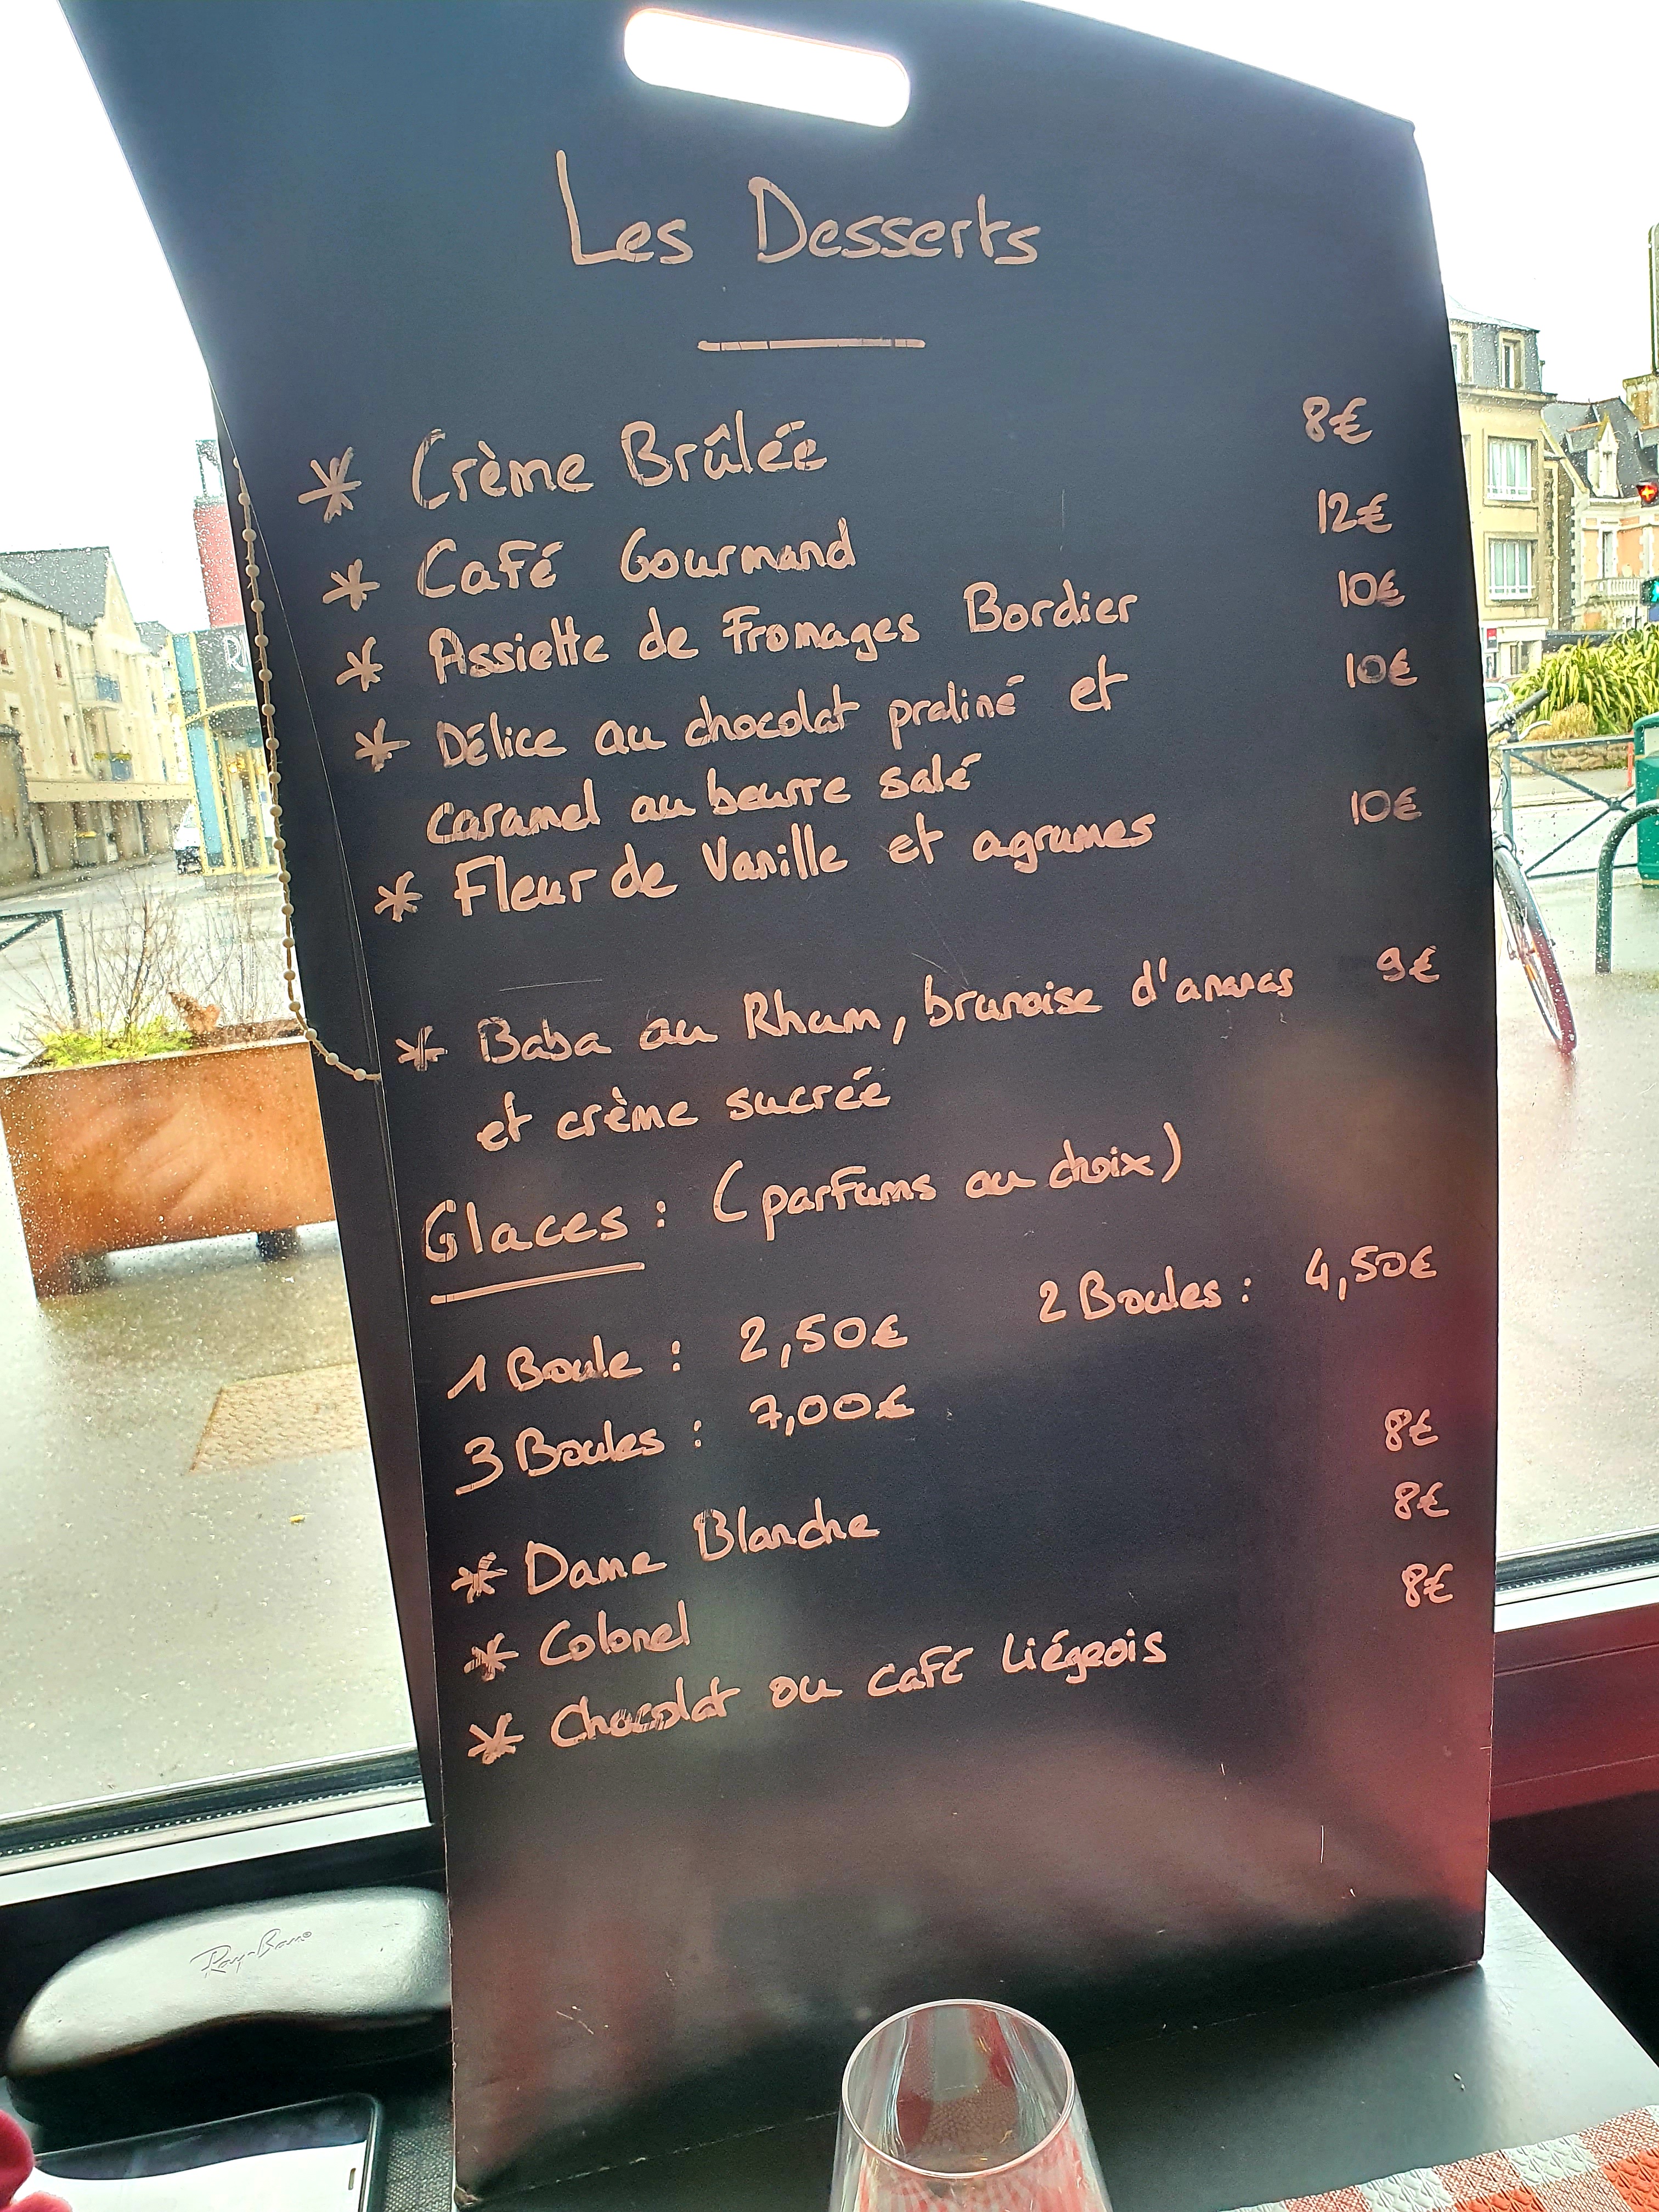 Les Desserts
* Crème Brûlée 8€
* Café Gourmand 12€
* Assiette de Fromages Bordier 10€
* Délice au chocolat praliné et 10€
caramel au beurre salé
* Fleur de Vanille et agrumes 10€
* Baba au Rhum, brunoise d'ananas 9€
et crème sucrée
Glaces : (parfums au choix)
1 Boule : 2,50€ 2 Boules : 4,50€
3 Boules : 7,00€
* Dame Blanche 8€
* Colonel 8€
* Chocolat ou café Liégeois 8€
Ray-Ban